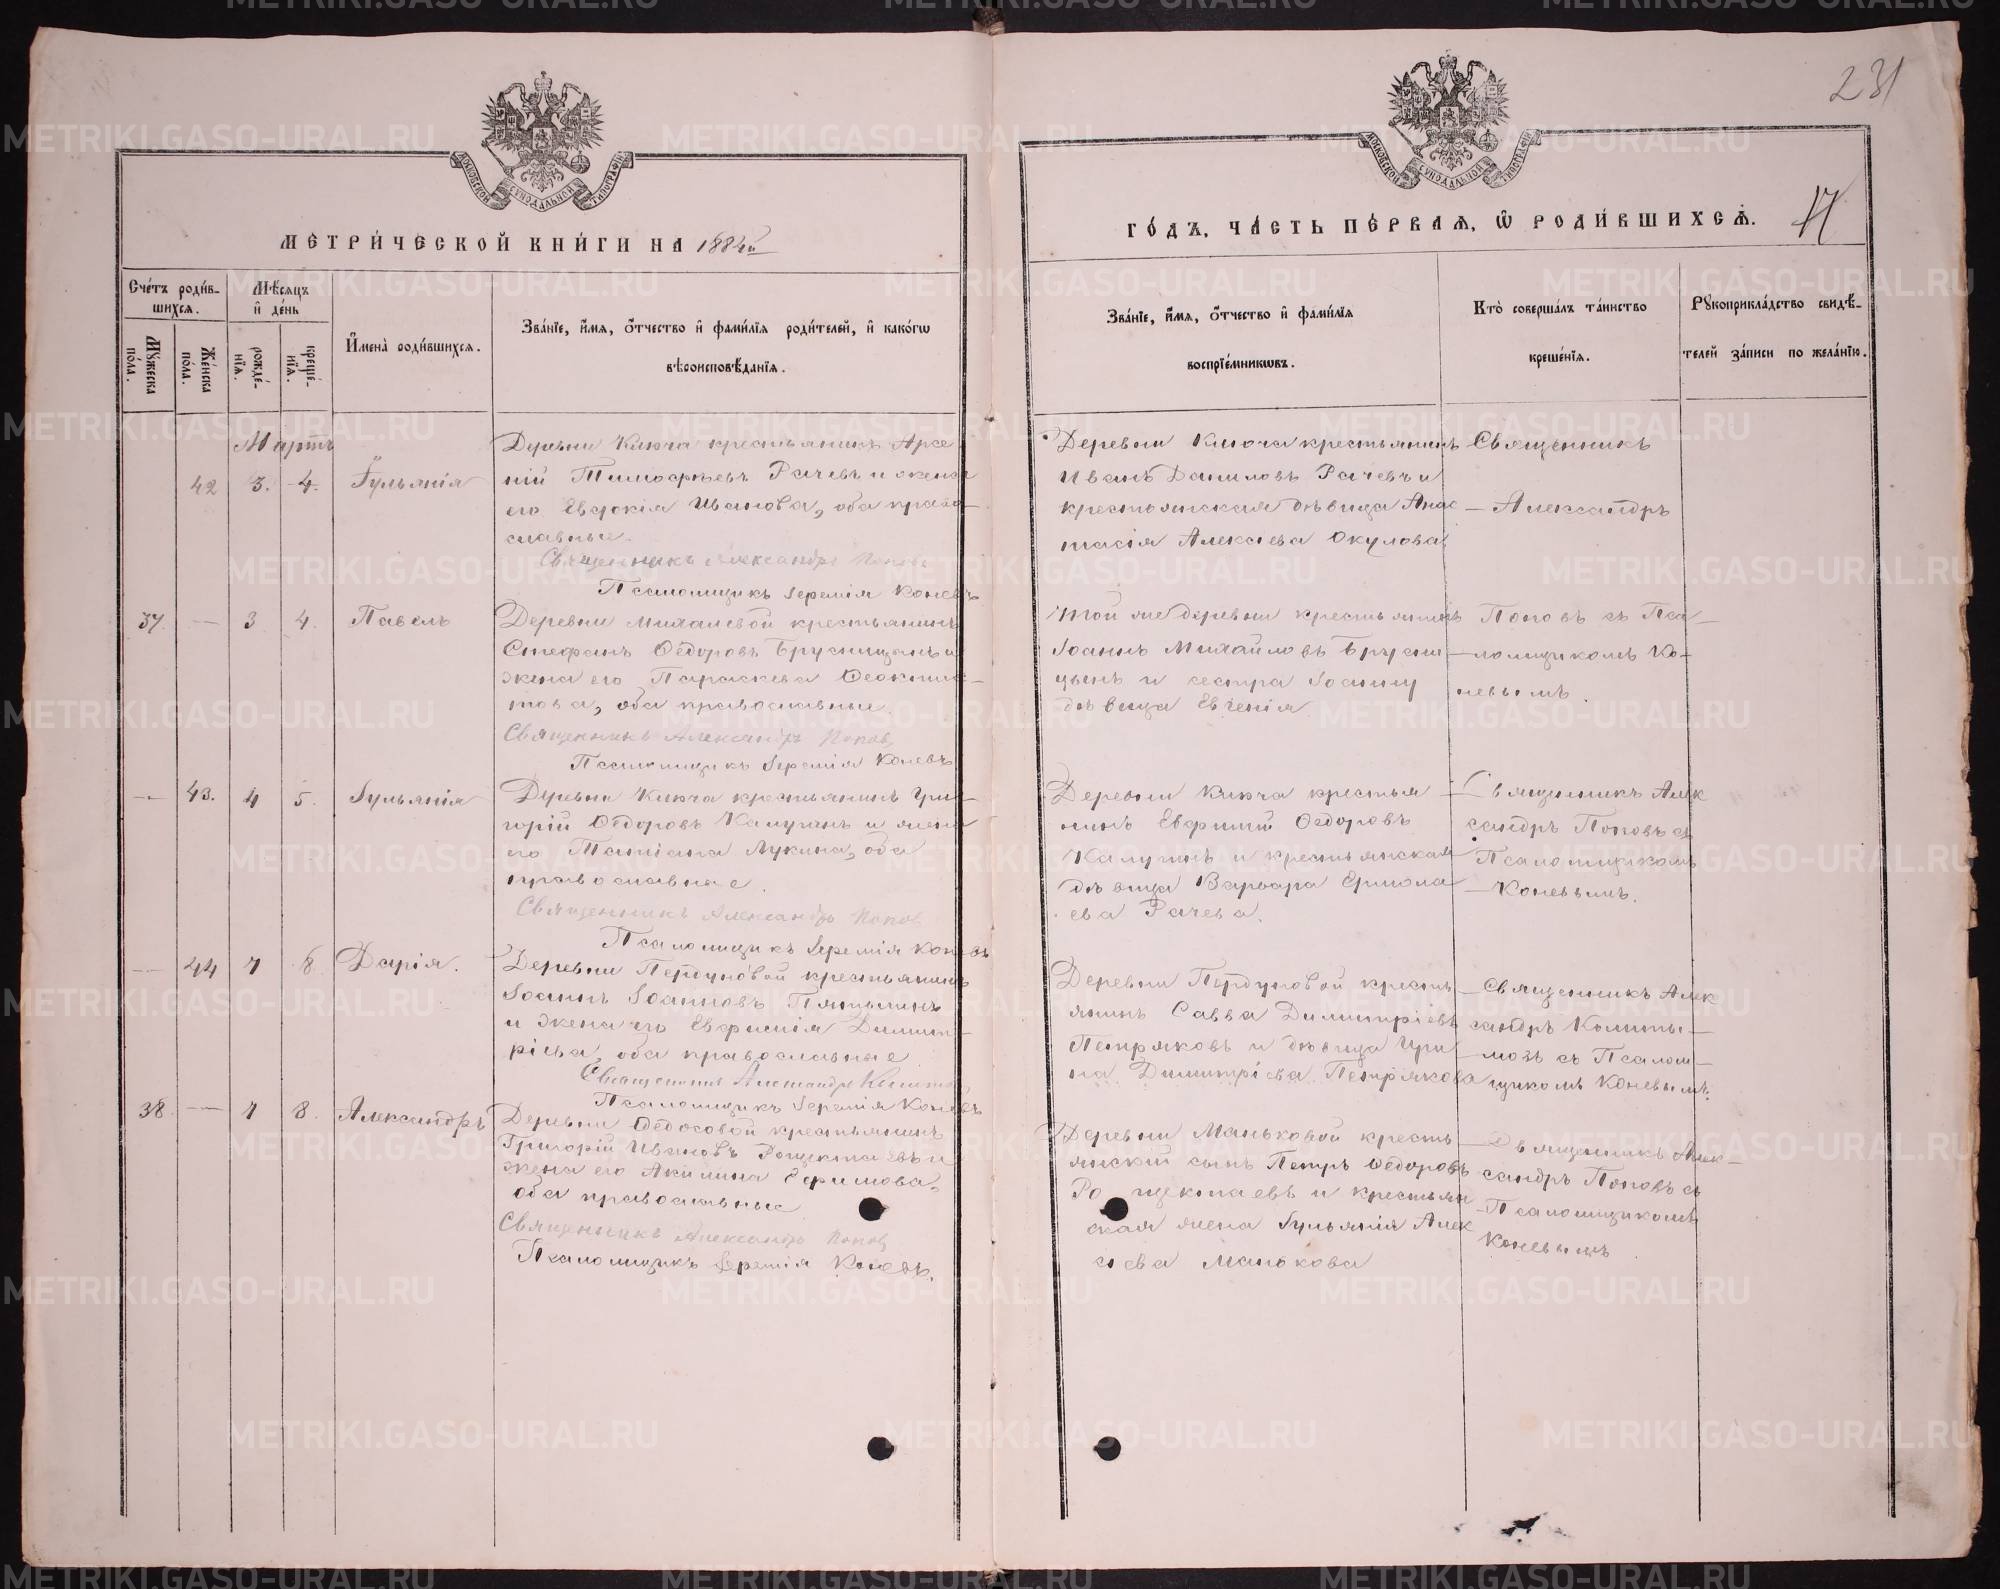 231
МОСКОВСКОЙ СУНОДАЛЬНОЙ ТИПОГРАФІИ
МОСКОВСКОЙ СУНОДАЛЬНОЙ ТИПОГРАФІИ
МЕТРИ́ЧЕСКОЙ КНИ́ГИ НА 1884й
ГО́ДЪ, ЧА́СТЬ ПЕ́РВАѦ, Ѡ РОДИ́ВШИХСѦ. 17
Сче́тъ роди́в-
шихсѧ.
Мѣ́сѧцъ
и҆ де́нь
Му́жеска
по́ла.
Же́нска
по́ла.
рожде́-
нїѧ.
креще́-
нїѧ.
И҆мена̀ роди́вшихсѧ.
Зва́нїе, и҆́мѧ, ѻ҆́тчество и҆ фами́лїѧ роди́телей, и҆ како́гѡ
вѣроисповѣ́данїѧ.
Зва́нїе, и҆́мѧ, ѻ҆́тчество и҆ фами́лїѧ
воспрїе́мникѡвъ.
Кто̀ соверша́лъ та́инство
креще́нїѧ.
Рꙋкоприкла́дство свидѣ́-
телей за́писи по жела́нїю.
Мартъ
42 3. 4. Іульянія
Деревни Ключа крестьянинъ Арсе
ній Тимофѣевъ Рачевъ и жена
его Евдокія Иванова, оба право-
славные.
Священникъ Александръ Поповъ
Псаломщикъ Іеремія Коневъ
Деревни Ключа крестьянинъ
Иванъ Даниловъ Рачевъ и
крестьянская дѣвица Анас
тасія Алексіева Окулова
Священникъ
Александръ
37. — 3 4. Павелъ
Деревни Михалевой крестьянинъ
Стефанъ Ѳедоровъ Брусницынъ и
жена его Параскева Ѳеоктис-
това, оба православные.
Священникъ Александръ Попов
Псаломщикъ Іеремія Коневъ
Той же деревни крестьянинъ
Іоаннъ Михайловъ Брусни-
цынъ и сестра Іоанну
дѣвица Евгенія
Поповъ съ Пса-
ломщикомъ Ко-
невымъ.
— 43. 4 5. Іульянія
Деревни Ключа крестьянинъ Гри-
горій Ѳедоровъ Калугинъ и жена
его Татіана Лукина, оба
православные.
Священникъ Александръ Попов
Псаломщикъ Іеремія Коневъ
Деревни Ключа крестья
нинъ Евфимій Ѳедоровъ
Калугинъ и крестьянская
дѣвица Варвара Ермола
ева Рачева.
Священникъ Алек
сандръ Поповъ съ
Псаломщикомъ
Коневымъ.
— 44 7 8 Дарія.
Деревни Пердуновой крестьянинъ
Іоаннъ Іоанновъ Пятылинъ
и жена его Евфимія Димит-
ріева, оба православные
Священникъ Александръ
Псаломщикъ Іеремія Коневъ
Деревни Пердуновой кресть
янинъ Савва Димитріевъ
Петряковъ и дѣвица Ири
на Димитріева Петрякова
Священникъ Алек
сандръ
съ Псалом-
щикомъ Коневымъ.
38. — 7 8. Александръ
Деревни Ѳедосовой крестьянинъ
Григорій Ивановъ Рощектаевъ и
жена его Акилина Ефимова,
оба православные
Священникъ Александръ Попов
Псаломщикъ Іеремія Коневъ.
Деревни Маньковой кресть
янскій сынъ Петръ Ѳедоровъ
Рощектаевъ и крестьян
ская жена Іульянія Алек
сіева Манькова
Священникъ Алек-
сандръ Поповъ съ
Псаломщикомъ
Коневымъ
METRIKI.GASO-URAL.RU